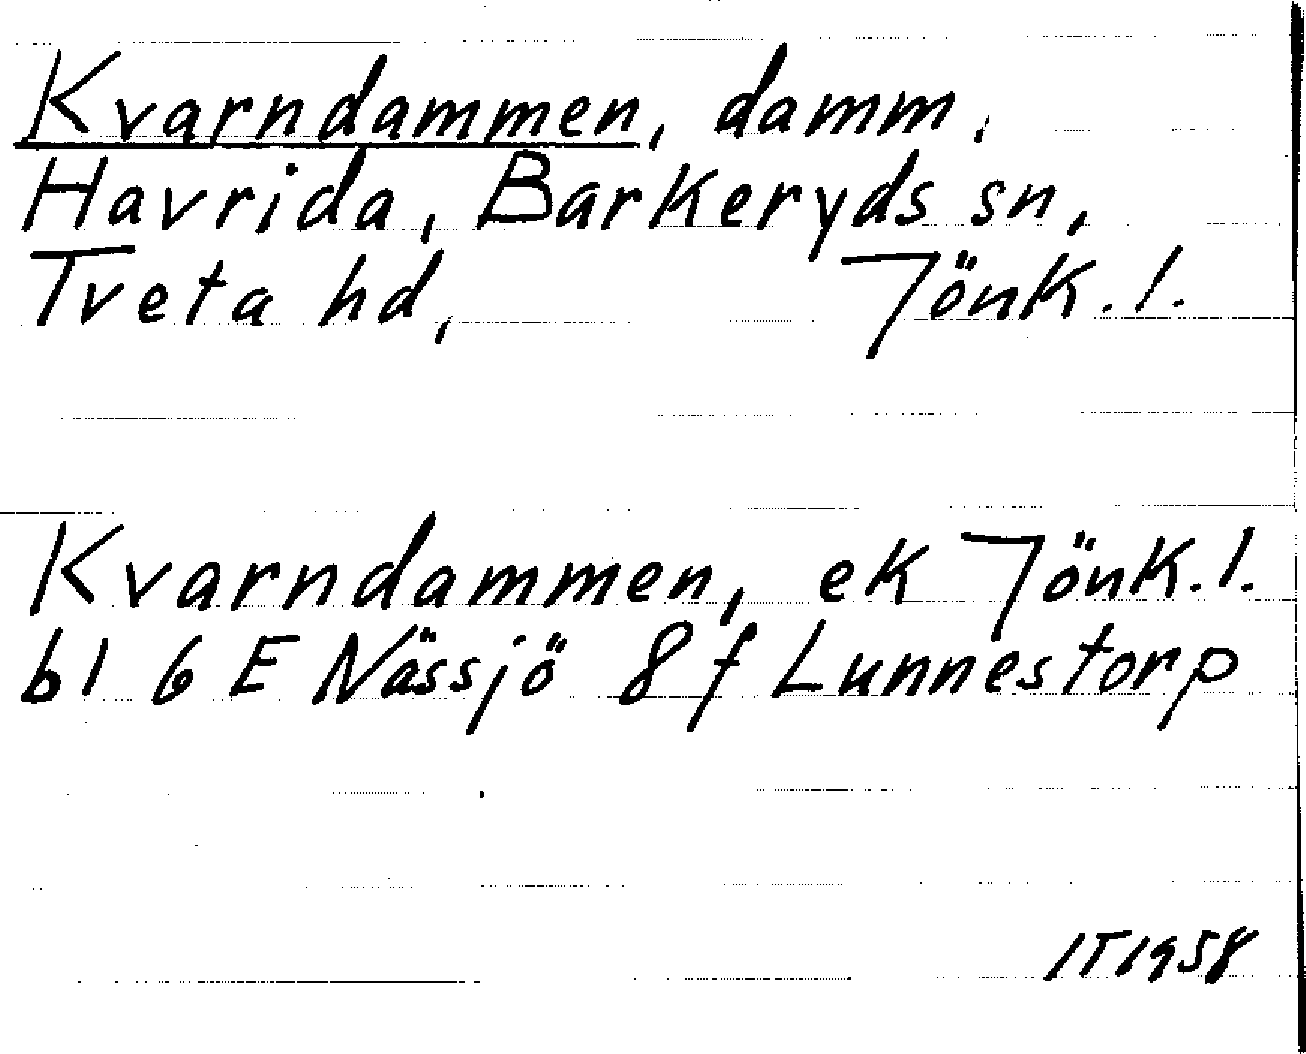 Kvarndammen, damm,
Havrida, Barkeryds sn,
Tveta hd, Jönk. l.
Kvarndammen, ek Jönk. l.
bl 6 E Nässjö 8 f Lunnestorp
IT 1958